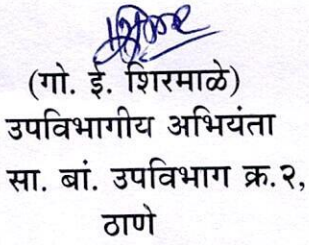 (गो. ई. शिरमाळे)
उपविभागीय अभियंता
सा. बां. उपविभाग क्र.२,
ठाणे